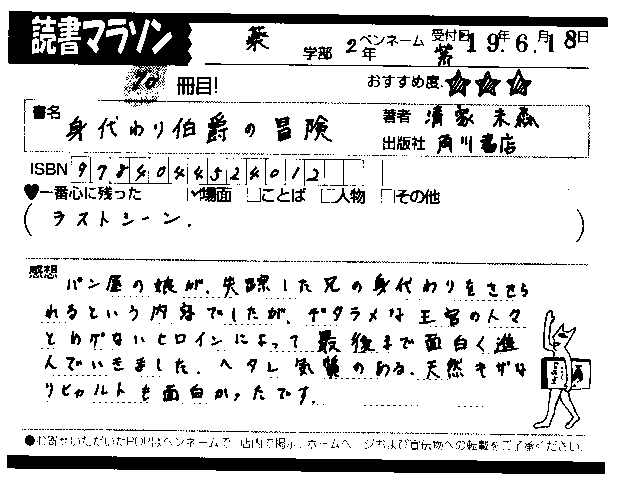 読書マラソン 薬 学部 2年 ペンネーム 紫 受付日 19年6月18日
70冊目! おすすめ度 ★★★
書名 身代わり伯爵の冒険 著者 清家未森
出版社 角川書店
ISBN 9784044524012
♥一番心に残った ✓場面 □ことば □人物 □その他
(ラストシーン. )
感想 パン屋の娘が、失踪した兄の身代わりをさせら
れるという内容でしたが、デタラメな王宮の人々
とめげないヒロインによって最後まで面白く進
んでいきました。ヘタレ気質のある、天然キザな
リヒャルトも面白かったです。
●お寄せいただいたPOPはペンネームで、店内で掲示、ホームページおよび宣伝物への転載をご了承ください。